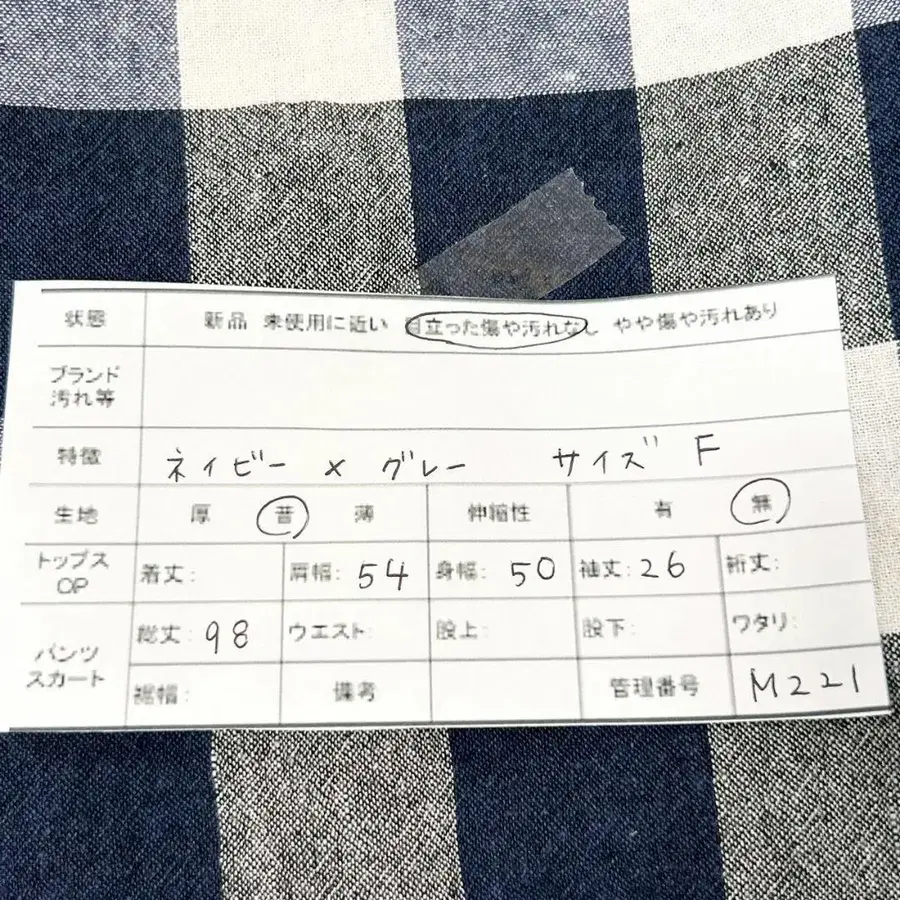 状態 新品 未使用に近い 目立った傷や汚れなし やや傷や汚れあり
ブランド
汚れ等
特徴 ネイビー × グレー サイズ F
生地 厚 普 薄 伸縮性 有 無
トップス
OP
着丈: 肩幅: 54 身幅: 50 袖丈: 26 裄丈:
パンツ
スカート
総丈: 98 ウエスト: 股上: 股下: ワタリ:
裾幅: 備考 管理番号 M221